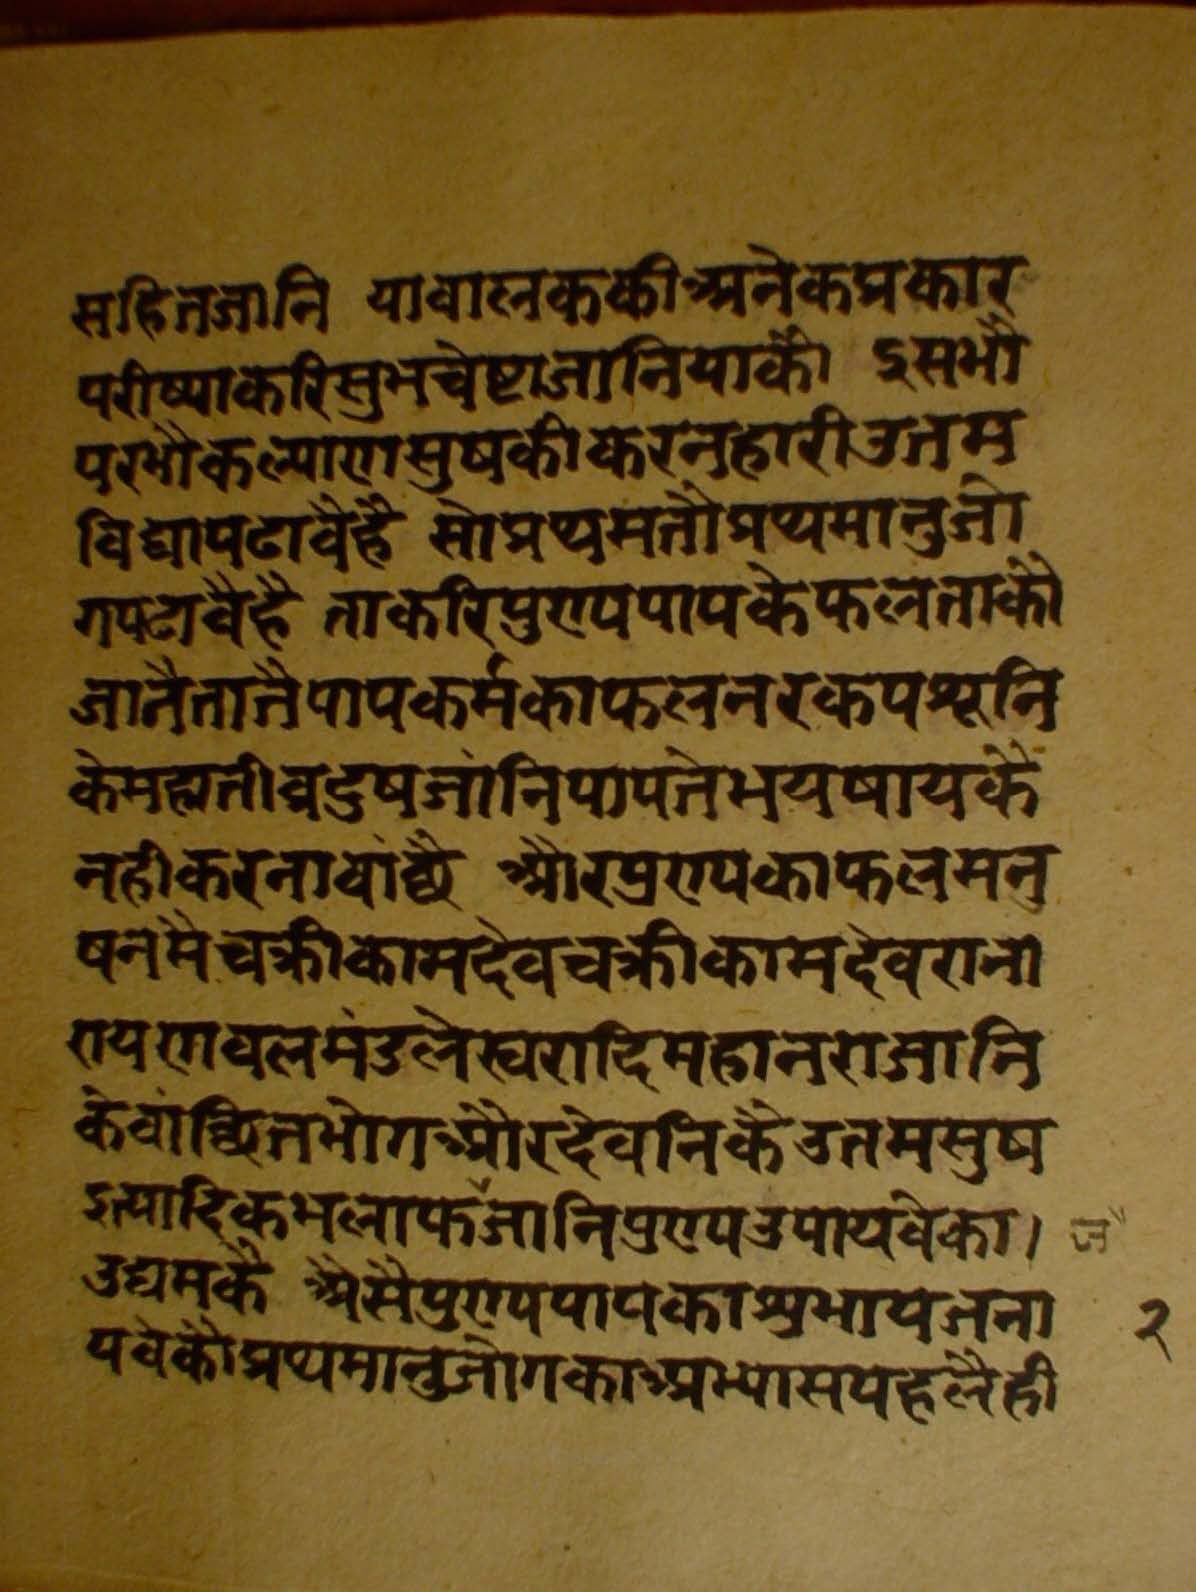 सहितजानि यावालककीअनेकप्रकार
परीष्याकरिसुभचेष्टाजानियाकौ इसभौ
परभौकल्याणसुषकीकरनहारीउतम
विद्यापढावैहै सोप्रथमतौप्रथमानुजो
गपढावैहै ताकरिपुण्यपापकेफलताकौ
जानैतानैपापकर्मकाफलनरकपशूनि
केमहातीव्रदुषजांनिपापतेभयषायकै
नहीकरनावांछै औरपुण्यकाफलमनु
षनमैचक्रीकामदेवचक्रीकामदेवराना
रायणवलमंडलेस्वरादिमहानराजानि
केवांछितभोगऔरदेवनिकैउतमसुष
इत्यादिकभलाफजांनिपुण्यउपायवेका।
उद्यमकै अैसैपुण्यपापका जना
यवेकौप्रथमानुजोगकाअभ्यासपहलैही
२